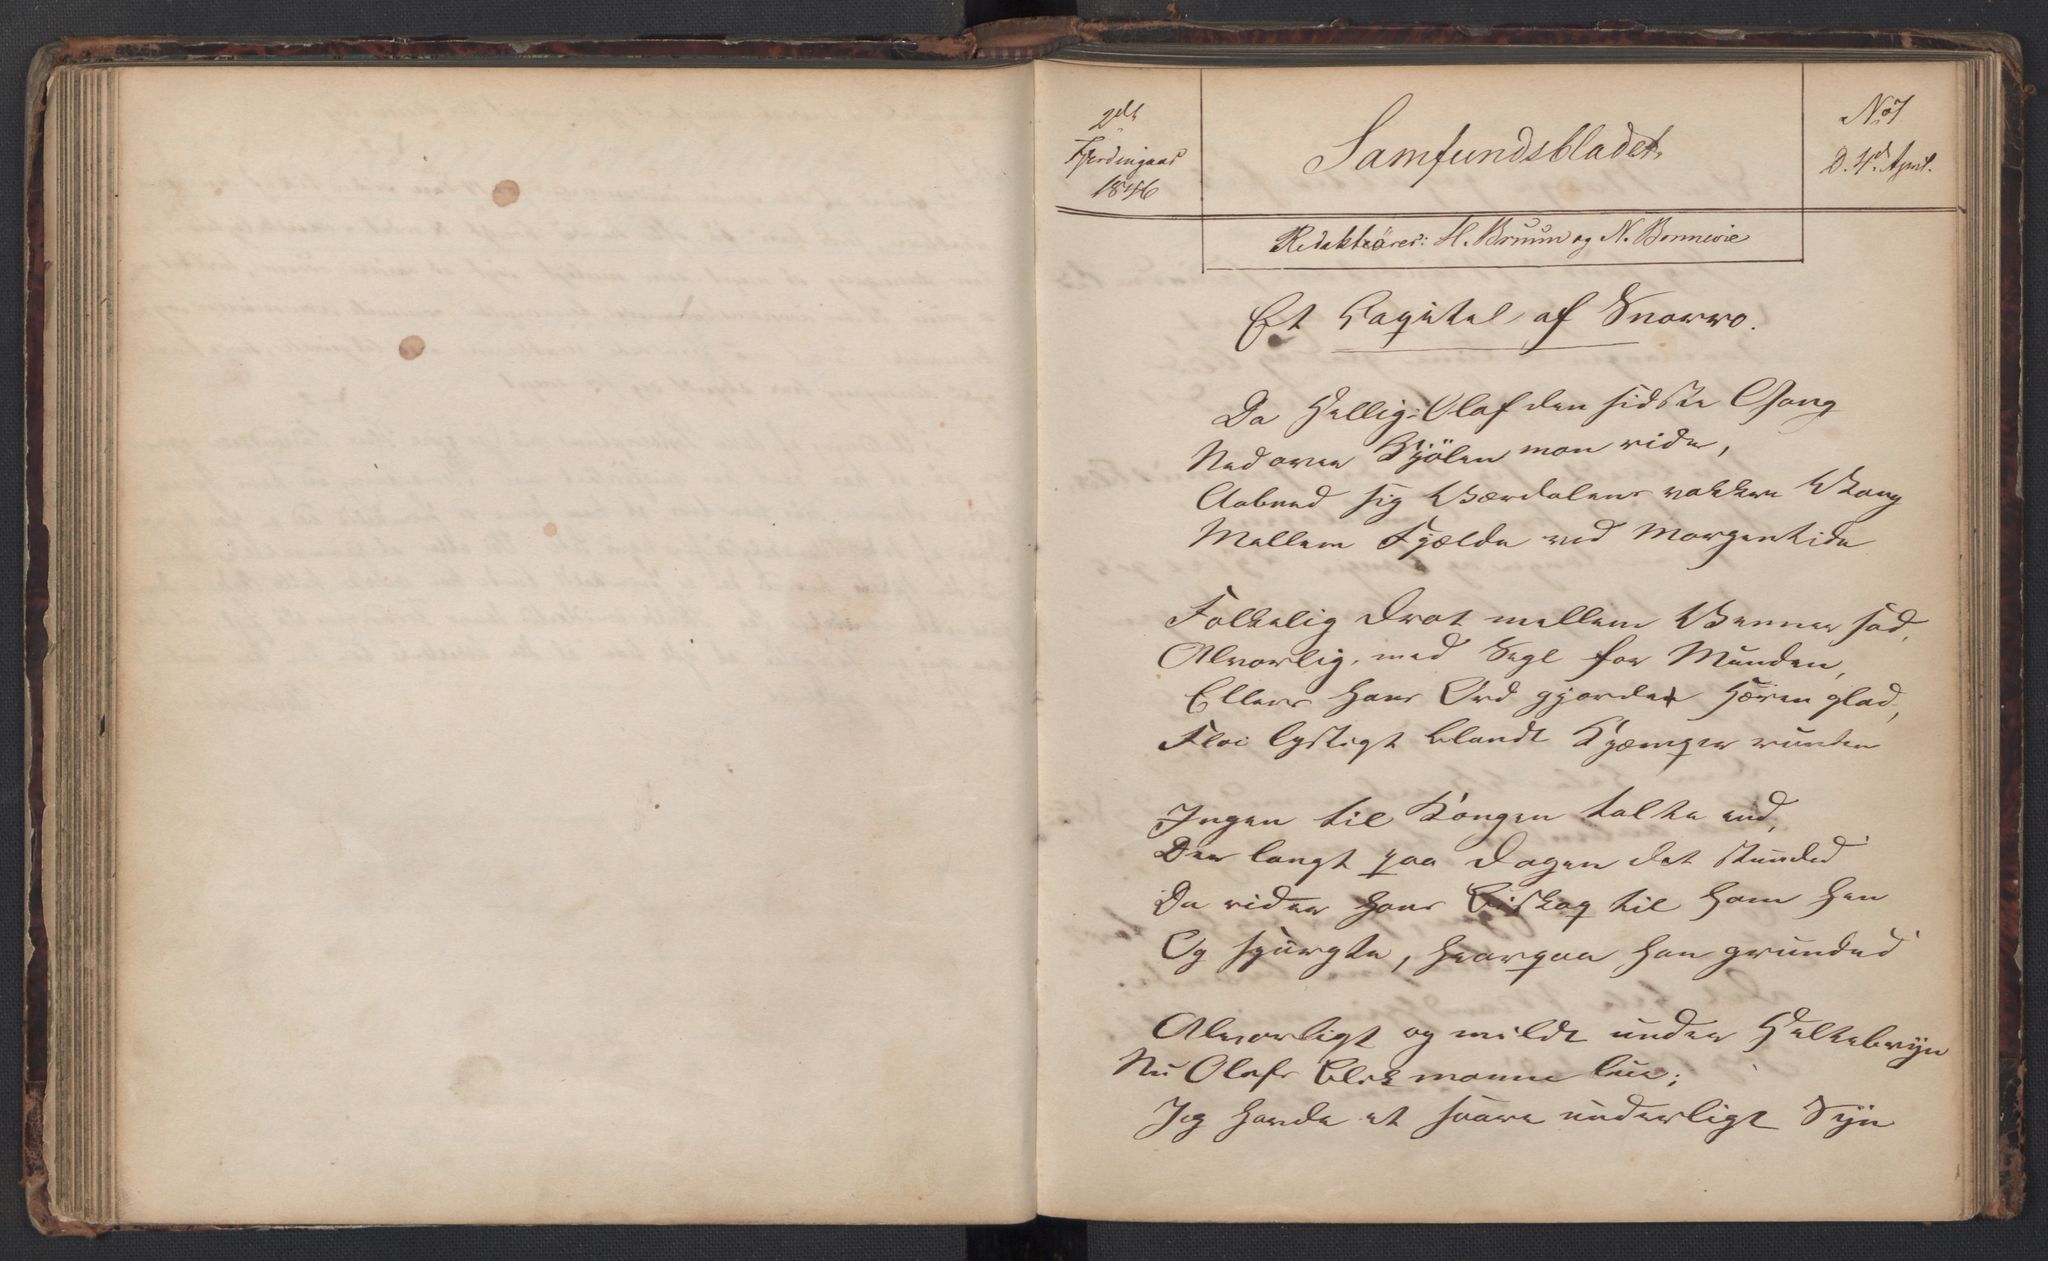 2det
Fjerdingaar
1846
Samfundsbladet.
No 1
D. 4de April.
Redaktører: H. Bruun og N. Bonnevie
Et Capitel af Snorro.
Da Hellig-Olaf den sidste Gang
Ned over Kjölen mon ride,
Aabned sig Værdalens vakkre Vang
Mellem Fjelde ved Morgentide
Folkelig Drot mellem Venner sad,
Alvorlig, med Segl for Munden,
Ellers hans Ord gjorde Hæren glad,
Fløi lystigt blandt Kjæmper runden
Ingen til Kongen talte end,
Der langt paa Dagen det stunded
Da rider hans Biskop til ham hen
Og spurgte, hvorpaa han grunded
Alvorligt og mildt under Heltebryn
Nu Olafs Blik monne lue;
Jeg havde et svare underligt Syn